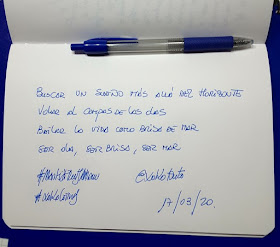 BUSCAR UN SUEÑO MÁS ALLÁ DEL HORIZONTE
VOLAR AL COMPÁS DE LAS OLAS
BAILAR LA VIDA COMO BRISA DE MAR
SER OLA, SER BRISA, SER MAR
17/03/20.